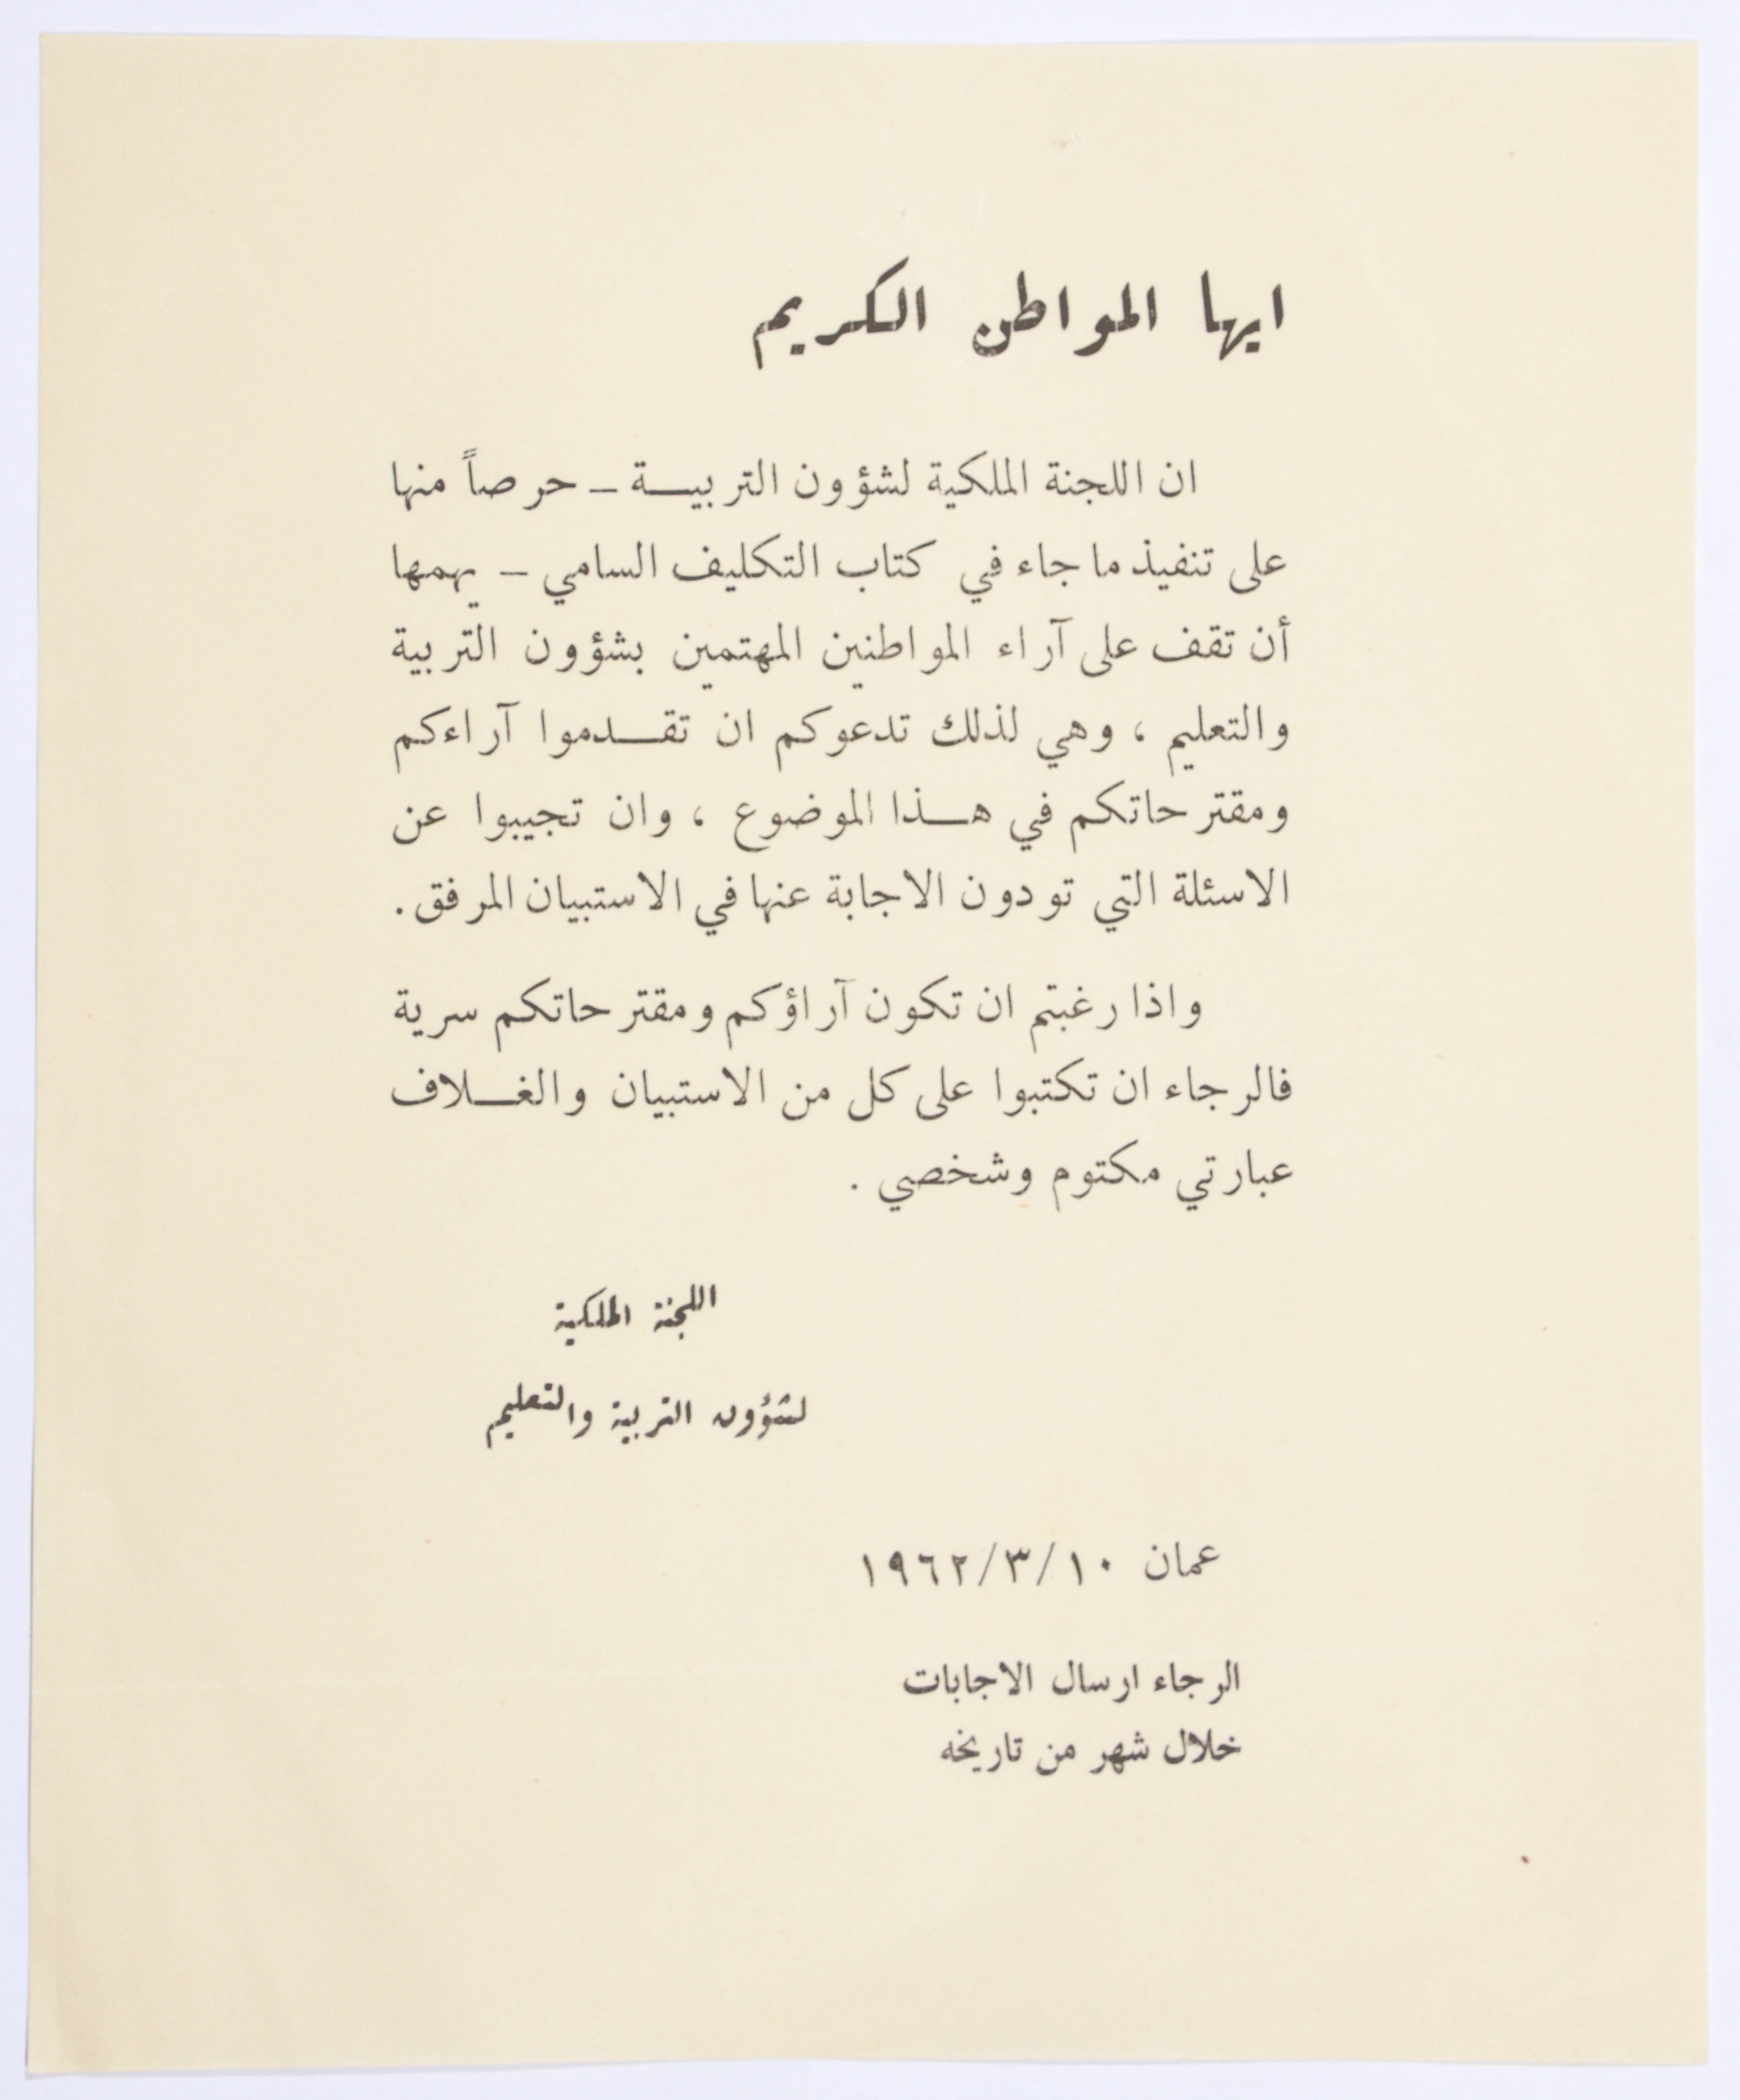 ايها المواطن الكريم
ان اللجنة الملكية لشؤون التربيــة ـ حرصاً منها
على تنفيذ ما جاء في كتاب التكليف السامي ـ يهمها
أن تقف على آراء المواطنين المهتمين بشؤون التربية
والتعليم ، وهي لذلك تدعوكم ان تقــدموا آراءكم
ومقترحاتكم في هــذا الموضوع ، وان تجيبوا عن
الاسئلة التي تودون الاجابة عنها في الاستبيان المرفق .
واذا رغبتم ان تكون آراؤكم ومقترحاتكم سرية
فالرجاء ان تكتبوا على كل من الاستبيان والغــلاف
عبارتي مكتوم وشخصي .
اللجنة الملكية
لشؤون التربية والتعليم
عمان ١٠/٣/١٩٦٢
الرجاء ارسال الاجابات
خلال شهر من تاريخه